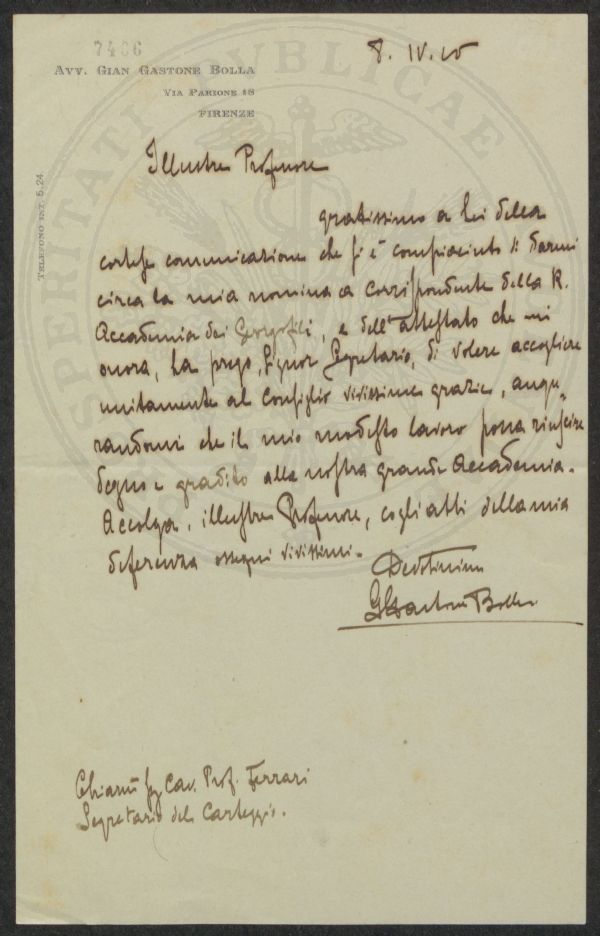 7406
8. IV. 15
AVV. GIAN GASTONE BOLLA
VIA PARIONE 18
FIRENZE
TELEFONO INT. 5.24
PROSPERITATI PUBLICAE
Illustre Professore
gratissimo a Lei della
cortese comunicazione che si è compiaciuto di darmi
circa la mia nomina a Corrispondente della R.
Accademia dei Georgofili, e dell'attestato che mi
onora, La prego, Signor Segretario, di volere accogliere
unitamente al Consiglio vivissime grazie, augu-
randomi che il mio modesto lavoro possa riuscire
degno e gradito alla nostra grande Accademia.
Accolga, illustre Professore, cogli atti della mia
deferenza ossequi vivissimi.
Devotissimo
GGastone Bolla
Chiarmo Sig Cav. Prof. Ferrari
Segretario del Carteggio.